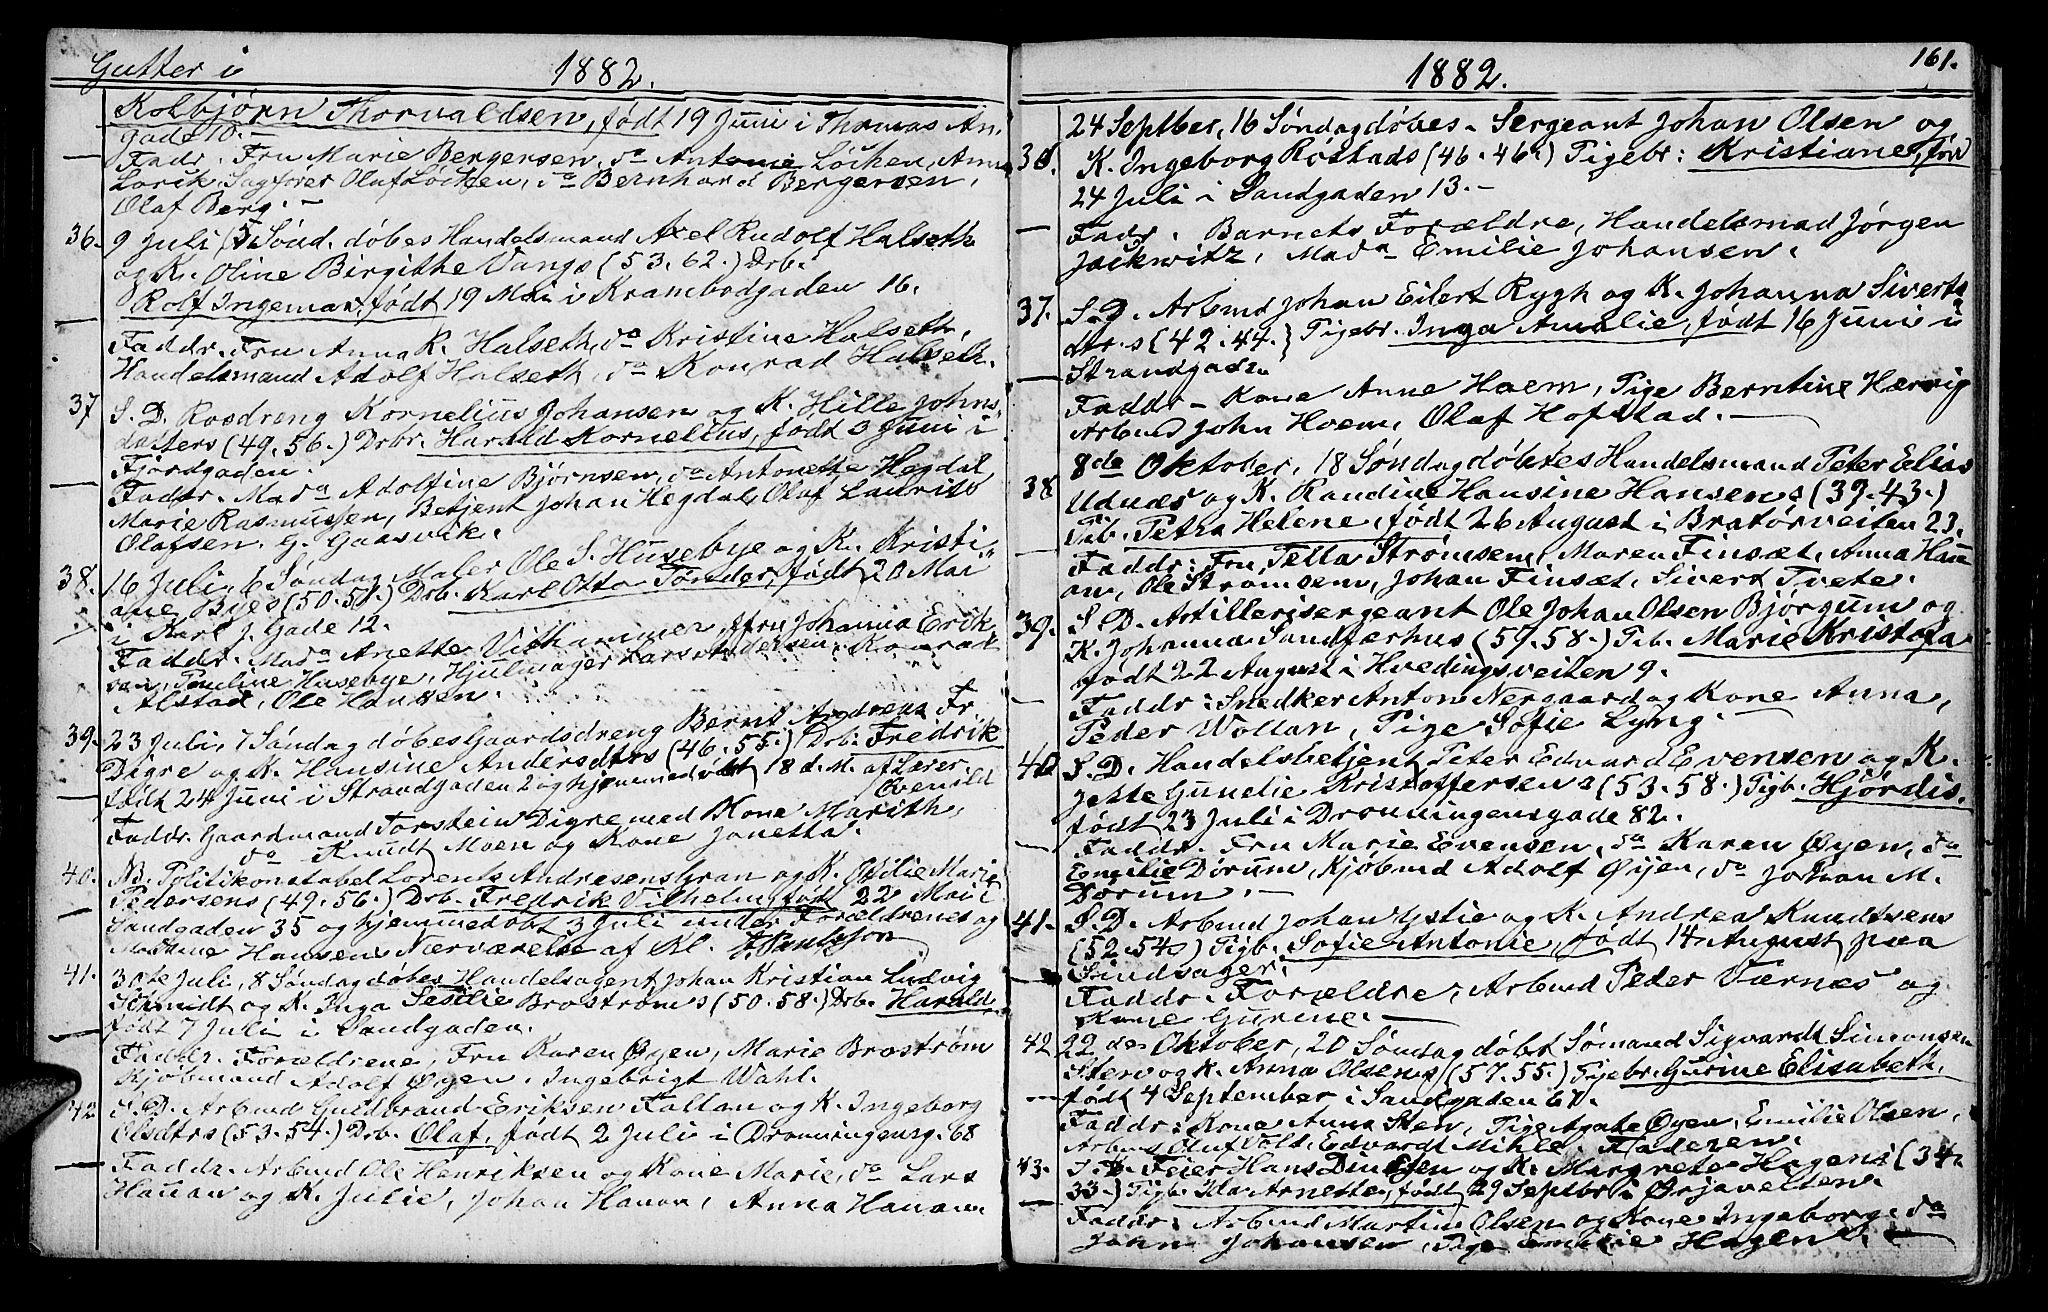 Gutter i 1882.
Kolbjørn Thorvaldsen, født 19 Juni i Thomas An-
gade 10.-
Fadr. Fru Marie Bergersen, do Antonie Løchen, Anna
Lorck, Sagfører Olaf Løchen, do Bernhard Bergersen,
Olaf Berg.-
36. 9 Juli (5 Sønd. døbes Handelsmand Axel Rudolf Halseth
og K. Oline Birgithe Vangs (53.62.) Drb.
Rolf Ingeman, født 19 Mai i Krambodgaden 16.
Faddr. Fru Anna K. Halseth, do Kristine Halseth,
Handelsmand Adolf Halseth, do Konrad Halseth.
37 S. D. Rosdreng Kornelius Johansen og K. Hille Johns-
datters (49.56.) Drbr. Harald Kornelius, født 3 Juni i
Fjordgaden.
Faddr. Mada Adolfine Bjørnsen, do Antonette Hegdal,
Marie Rasmussen, Betjent Johan Hegdal, Olaf Lauritz
Olafsen. G. Gaasvik.
38. 16 Juli, 6 Søndag, Maler Ole S. Husebye og K. Kristi-
ane Byes (50.51.) Drb. Karl Otto Tønder, født 20 Mai
i Karl J. Gade 12.
Faddr. Mada Anette Vithammer, Fru Johanna Erik-
sen, Pauline Husebye, Hjulmager Lars Andersen, Konrad
Alstad, Ole Hansen.
39. 23 Juli, 7 Søndag døbes Gaardsdreng Bernt Andreas Fr.
Digre og K. Hansine Andersdtrs (46.55.) Drb: Fredrik
født 24 Juni i Strandgaden 2 og hjemmedøbt 18 d. M. af Lærer
Øvenild
Faddr. Gaardmand Torstein Digre med Kone Marith,
do Knudt Moen og Kone Janetta.
40. No. Politikonstabel Lorents Andresens Gran og K. Ofilie Marie
Pedersens (49.56.) Drb. Fredrik Vilhelm, født 22 Mai i
Sandgaden 35 og hjemmedøbt 3 Juli under Forældrenes og
Madame Hansens Nærværelse af Kl.
41. 30te Juli, 8 Søndag døbes Handelsagent Johan Kristian Ludvig
Schmidt og K. Inga Sesilie Brostrøms (50.58.) Drb. Harald
født 7 Juli i Sandgaden.
Faddr. Forældrene, Fru Karen Øyen, Marie Brostrøm
Kjøbmand Adolf Øyen. Ingebrigt Wahl.
42 S. D. Arbmd Guldbrand Eriksen Fallan og K. Ingeborg
Olsdtrs (53.54.) Drb. Olaf, født 2 Juli i Dronningensg. 68
Faddr. Arbmd Ole Henriksen og Kone Marie, do Lars
Hanan og K. Julie, Johan Hanan, Anna Hanan.
1882. 161.
24 Septber, 16 Søndag døbes - Sergeant Johan Olsen og
36. K. Ingeborg Røstads (46.46.) Pigebr: Kristiane, født
24 Juli i Sandgaden 13.-
Fadr. Barnets Forældre, Handelsmad Jørgen
Jackwitz, Mada Emilie Johansen.
37. S. D. Arbmd Johan Eilert Rygh og K. Johanna Siverts-
dtr.s (42.44.) Pigebr. Inga Amalie, født 16 Juni i
Strandgadn
Faddr - Kone Anne Hoem, Pige Berntine Hærvig
Arbmd John Hoem, Olaf Hofstad.-
8de Oktober, 18 Søndag døbtes Handelsmand Peter Elias
38 Udnæs og K. Randine Hansine Hansens (39.43.)
Pib. Petra Helene, født 26 August i Bratørveiten 23.
Faddr: Fru Pella Strømsem, Maren Finsæt, Anna Han-
an, Ole Strømsem, Johan Finsæt, Sivert Tvete.
39. S. D. Artillerisergeant Ole Johan Olsen Bjørgum og
K. Johanna Sandfærhus (59.58.) Pib. Marie Kristofa
født 22 August i Hvedingsveiten 9.
Faddr: Snedker Anton Nergaard og Kone Anna,
Peder Wollan, Pige Sofie Lyng.
40 S. D. Handelsbetjent Peter Edvard Evensen og K.
Jette Gunelie Kristoffersens (53.58.) Pigb. Hjørdis,
født 23 Juli i Dronningensgade 82.
Faddr. Fru Marie Evensen, do Karen Øyen, do
Emilie Dørum, Kjøbmd Adolf Øyen, do Johan M.
Dørum.-
41. S. D. Arbmd Johan Ystie og K. Andrea Knudtsens
(52.54.) Pigb. Sofie Antonie, født 14 August paa
Sindsager.
Faddr. Forældre, Arbmd Peder Værnæs og
Kone Gurine.-
42 22 des Oktober, 20 Søndag døbt Sømand Sigvardt Simonsen
Sten og K. Anna Olsens (57.55.) Pigebr. Gurine Elisabeth,
født 4 September i Sandgaden 61.
Faddr: Kone Anna Sten, Pige Agate Øyen, Emilie Olsen,
Arbmd Oluf Volt, Edvardt Mihle, Faderen.
43. S. D. Feier Hans Dineßen og K. Margrete Hagens (34.
33.) Pigb. Ida Arnette, født 29 Septbr i Ørjaveiten.
Faddr: Arbmd Martin Olsen og Kone Ingeborg, do
John Johansen, Pige Emilie Hagen.-